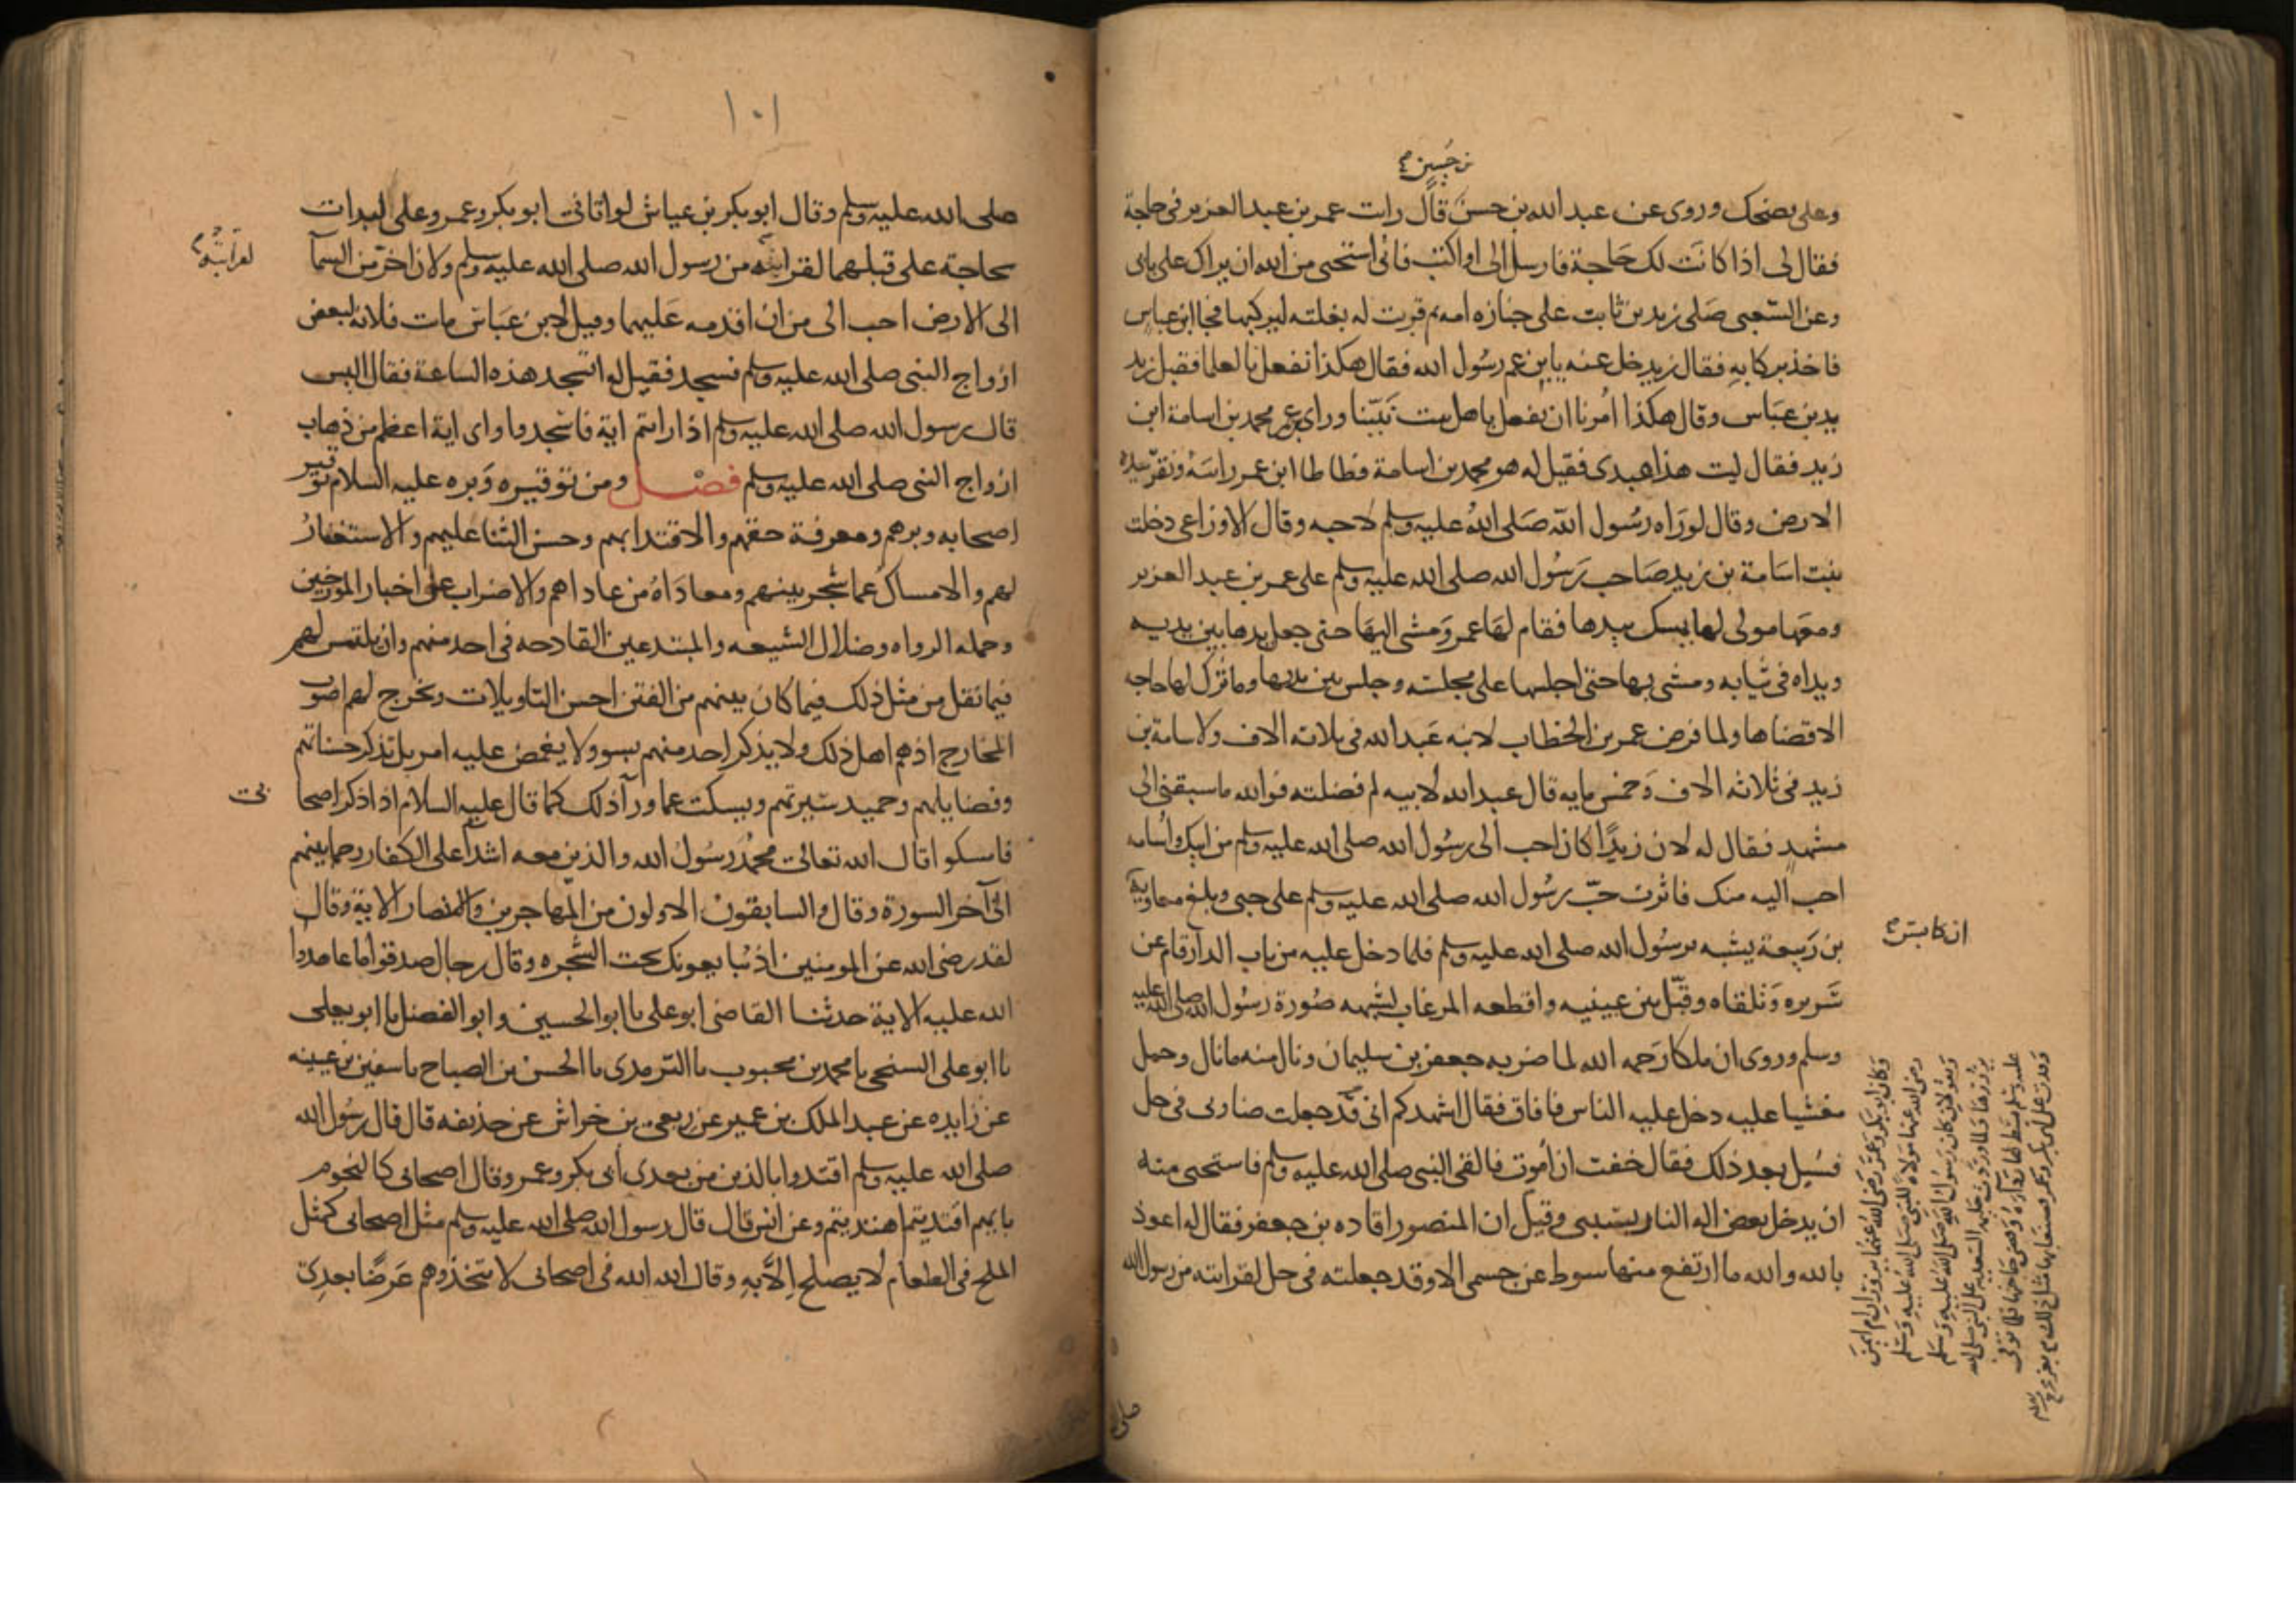 بن حسين
وعلي يضحك وروى عن عبد الله بن حسن قال رات عمر بن عبد العزيز في حاجة
فقال لي اذا كانت لك حاجة فارسل الي او اكتب فاني استحيي من الله ان يراك على بابي
وعن الشعبي صلى زيد بن ثابت على جنازه امه ثم قربت له بغلته ليركبها فجا ابن عباس
فاخذ بركابه فقال زيد خل عنه يا بن عم رسول الله فقال هكذا نفعل بالعلما فقبل زيد
يد بن عباس وقال هكذا امرنا ان نفعل باهل بيت نبينا وراى بن عمر محمد بن اسامة ابن
زيد فقال ليت هذا عبدى فقيل له هو محمد بن اسامة فطاطا ابن عمر راسه ونقر بيده
الارض وقال لو راه رسول الله صلى الله عليه وسلم لاحبه وقال الاوزاعي دخلت
بنت اسامة بن زيد صاحب رسول الله صلى الله عليه وسلم على عمر بن عبد العزيز
ومعها مولى لها يمسك بيدها فقام لها عمر ومشى اليها حتى جعل يدها بين يديه
ويداه في ثيابه ومشى بها حتى اجلسها على مجلسه وجلس بين يديها وما ترك لها حاجه
الا قضاها ولما فرض عمر بن الخطاب لابنه عبد الله في ثلاثه الاف ولاسامة بن
زيد في ثلاثه الاف وخمس مايه قال عبد الله لابيه لم فضلته فوالله ما سبقني الى
مشهد فقال له لان زيدا كان احب الى رسول الله صلى الله عليه وسلم من ابيك واسامه
احب اليه منك فاثرت حب رسول الله صلى الله عليه وسلم على حبي وبلغ معاوية
ان كابس
بن ربيعة يشبه برسول الله صلى الله عليه وسلم فلما دخل عليه من باب الدار قام عن
سريره وتلقاه وقبل بين عينيه واقطعه المرغاب لشبهه صورة رسول الله صلى الله عليه
وسلم وروى ان ملكا رحمه الله لما ضربه جعفر بن سليمان ونال منه ما نال وحمل
مغشيا عليه دخل عليه الناس فافاق فقال اشهدكم اني قد جعلت ضاربي في حل
فسيل بعد ذلك فقال خفت ان اموت فالقى النبي صلى الله عليه وسلم فاستحيي منه
ان يدخل بعض اله النار بسببي وقيل ان المنصور اقاده بن جعفر فقال له اعوذ
بالله والله ما ارتفع منها سوط عن جسمي الا وقد جعلته في حل لقرابته من رسول الله
وكان ابو بكر وعمر رضي الله عنهما يزوران ام ايمن
رضي الله عنها مولاة للنبي صلى الله عليه وسلم
ويقولان كان رسول الله صلى الله عليه وسلم
يزورها ولما وردت حليمه السعديه على النبي صلى الله
عليه وسلم بسط لها رداءه وقضى حاجتها فلما توفي
وفدت على ابي بكر وعمر فصنعا بها مثل ذلك
صلى
١٠١
صلى الله عليه وسلم وقال ابو بكر بن عياش لو اتاني ابو بكر وعمر وعلي لبدات
بحاجة علي قبلهما لقرابته من رسول الله صلى الله عليه وسلم ولان اخر من السما
لقرابته
الى الارض احب الي من ان اقدمه عليهما وقيل لابن عباس مات فلانة لبعض
ازواج النبي صلى الله عليه وسلم فسجد فقيل له اتسجد هذه الساعة فقال اليس
قال رسول الله صلى الله عليه وسلم اذا رايتم اية فاسجدوا واي اية اعظم من ذهاب
ازواج النبي صلى الله عليه وسلم فصل ومن توقيره وبره عليه السلام توقير
اصحابه وبرهم ومعرفة حقهم والاقتدا بهم وحسن الثنا عليهم والاستغفار
لهم والامساك عما شجر بينهم ومعاداة من عاداهم والاضراب عن اخبار المورخين
وجمله الرواه وضلال الشيعه والمبتدعين القادحه في احد منهم وان يلتمس لهم
فيما نقل من مثل ذلك فيما كان بينهم من الفتن احسن التاويلات ويخرج لهم اصوب
المخارج اذ هم اهل ذلك ولا يذكر احد منهم بسو ولا يغمض عليه امر بل تذكر حسناتهم
وفضايلهم وحميد سيرتهم ويسكت عما ورآ ذلك كما قال عليه السلام اذا ذكر اصحا
بي
فامسكوا قال الله تعالى محمد رسول الله والذين معه اشدا على الكفار رحما بينهم
الى آخر السورة وقال والسابقون الاولون من المهاجرين والانصار الاية وقال
لقد رضي الله عن المومنين اذ يبايعونك تحت الشجره وقال رجال صدقوا ما عاهدوا
الله عليه الاية حدثنا القاضي ابو علي نا ابو الحسين وابو الفضل نا ابو يعلى
نا ابو علي السنجي نا محمد بن محبوب نا الترمذى نا الحسن بن الصباح نا سفين بن عيينه
عن زايده عن عبد الملك بن عمير عن ربعي بن خراش عن حذيفه قال قال رسول الله
صلى الله عليه وسلم اقتدوا بالذين من بعدي ابي بكر وعمر وقال اصحابي كالنجوم
بايهم اقتديتم اهتديتم وعن انس قال قال رسول الله صلى الله عليه وسلم مثل اصحابي كمثل
الملح في الطعام لا يصلح الا به وقال الله الله في اصحابي لا تتخذوهم عرضا بعدي